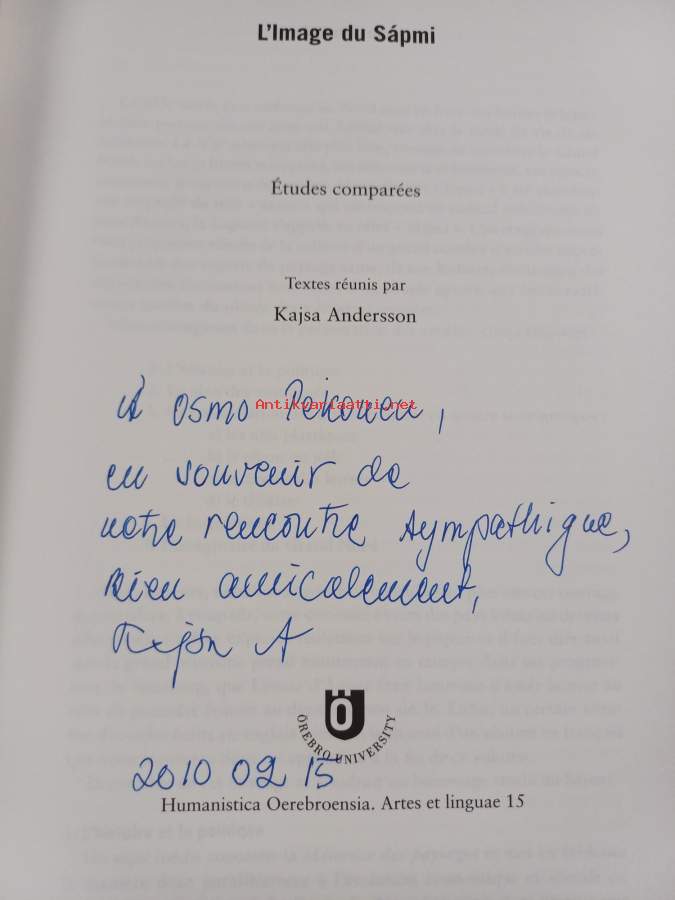 L'Image du Sápmi
Études comparées
Textes réunis par
Kajsa Andersson
À Osmo Pekonen,
Antikvariaatti.net
en souvenir de
notre rencontre sympathique,
bien amicalement,
Kajsa A
Ö
ÖREBRO UNIVERSITY
2010 02 15
Humanistica Oerebroensia. Artes et linguae 15